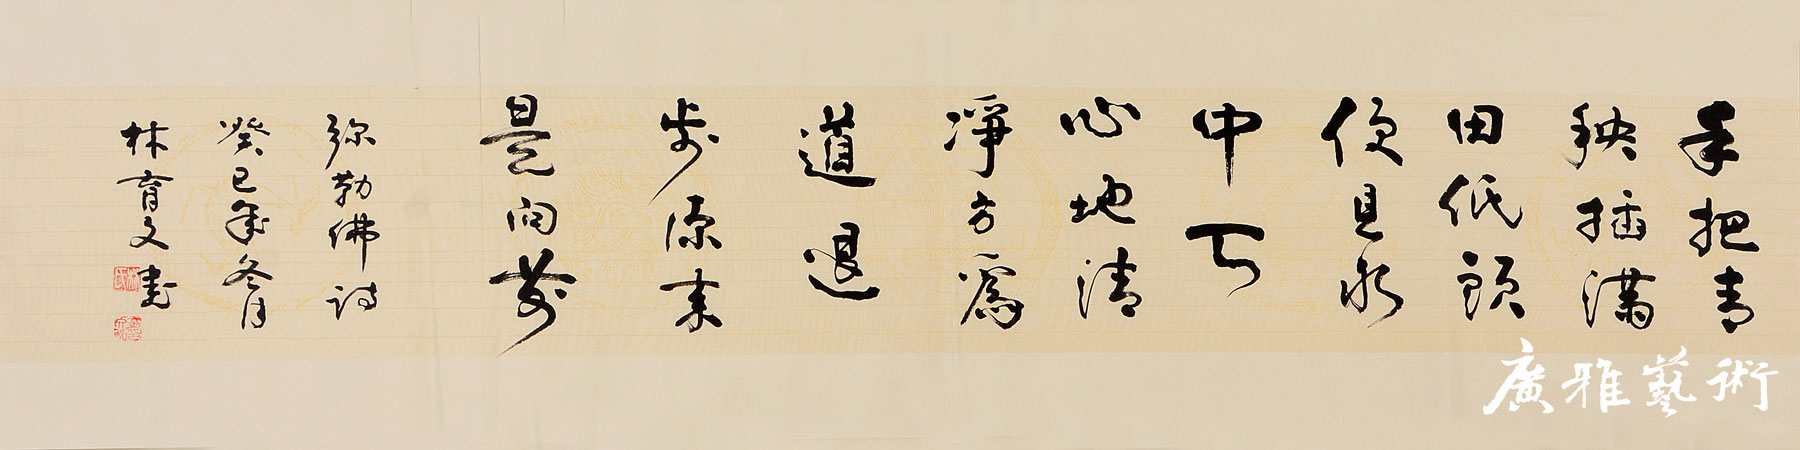 手把青
秧插满
田低头
便见水
中天
心地清
净方为
道退
步原来
是向前
弥勒佛诗
癸巳年冬月
林育文书
廣雅藝術